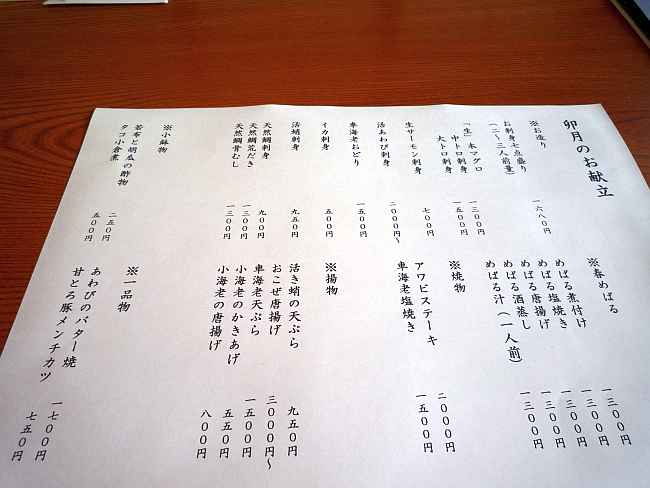 卯月のお献立
※お造り
お刺身七点盛り
(二〜三人前量) 一六八〇円
「生」本マグロ
中トロ刺身 一三〇〇円
大トロ刺身 一五〇〇円
生サーモン刺身 七〇〇円
活あわび刺身 二〇〇〇円〜
車海老おどり 一五〇〇円
イカ刺身 五〇〇円
活蛸刺身 九五〇円
天然鯛刺身 九〇〇円
天然鯛荒だき 一三〇〇円
天然鯛骨むし 一三〇〇円
※小鉢物
若布と胡瓜の酢物 二五〇円
タコ小倉煮 五〇〇円
※春めばる
めばる煮付け 一三〇〇円
めばる塩焼き 一三〇〇円
めばる唐揚げ 一三〇〇円
めばる酒蒸し 一三〇〇円
めばる汁(一人前) 一三〇〇円
※焼物
アワビステーキ 二〇〇〇円
車海老塩焼き 一五〇〇円
※揚物
活き蛸の天ぷら 九五〇円
おこぜ唐揚げ 三〇〇〇円〜
車海老天ぷら 一五〇〇円
小海老のかきあげ 五五〇円
小海老の唐揚げ 八〇〇円
※一品物
あわびのバター焼 一七〇〇円
甘とろ豚メンチカツ 七五〇円